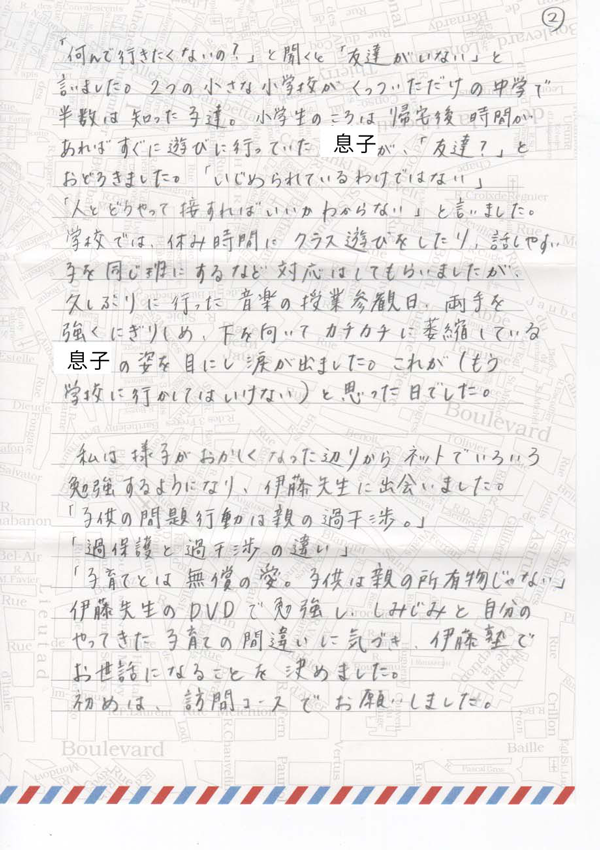 ②
「何んで行きたくないの？」と聞くと「友達がいない」と
言いました。2つの小さな小学校がくっついただけの中学で
半数は知った子達。小学生のころは帰宅後時間が
あればすぐに遊びに行っていた 息子 が、「友達？」と
おどろきました。「いじめられているわけではない」
「人とどうやって接すればいいかわからない」と言いました。
学校では、休み時間にクラス遊びをしたり、話しやすい
子を同じ班にするなど対応はしてもらいましたが、
久しぶりに行った音楽の授業参観日、両手を
強くにぎりしめ、下を向いてカチカチに萎縮している
息子 の姿を目にし涙が出ました。これが（もう
学校に行かしてはいけない）と思った日でした。
私は様子がおかしくなった辺りからネットでいろいろ
勉強するようになり、伊藤先生に出会いました。
「子供の問題行動は親の過干渉。」
「過保護と過干渉の違い」
「子育てとは無償の愛。子供は親の所有物じゃない」
伊藤先生のDVDで勉強し、しみじみと自分の
やってきた子育ての間違いに気づき、伊藤塾で
お世話になることを決めました。
初めは、訪問コースでお願いしました。
Boulevard
Boulevard
Rue
Baille
Crillon